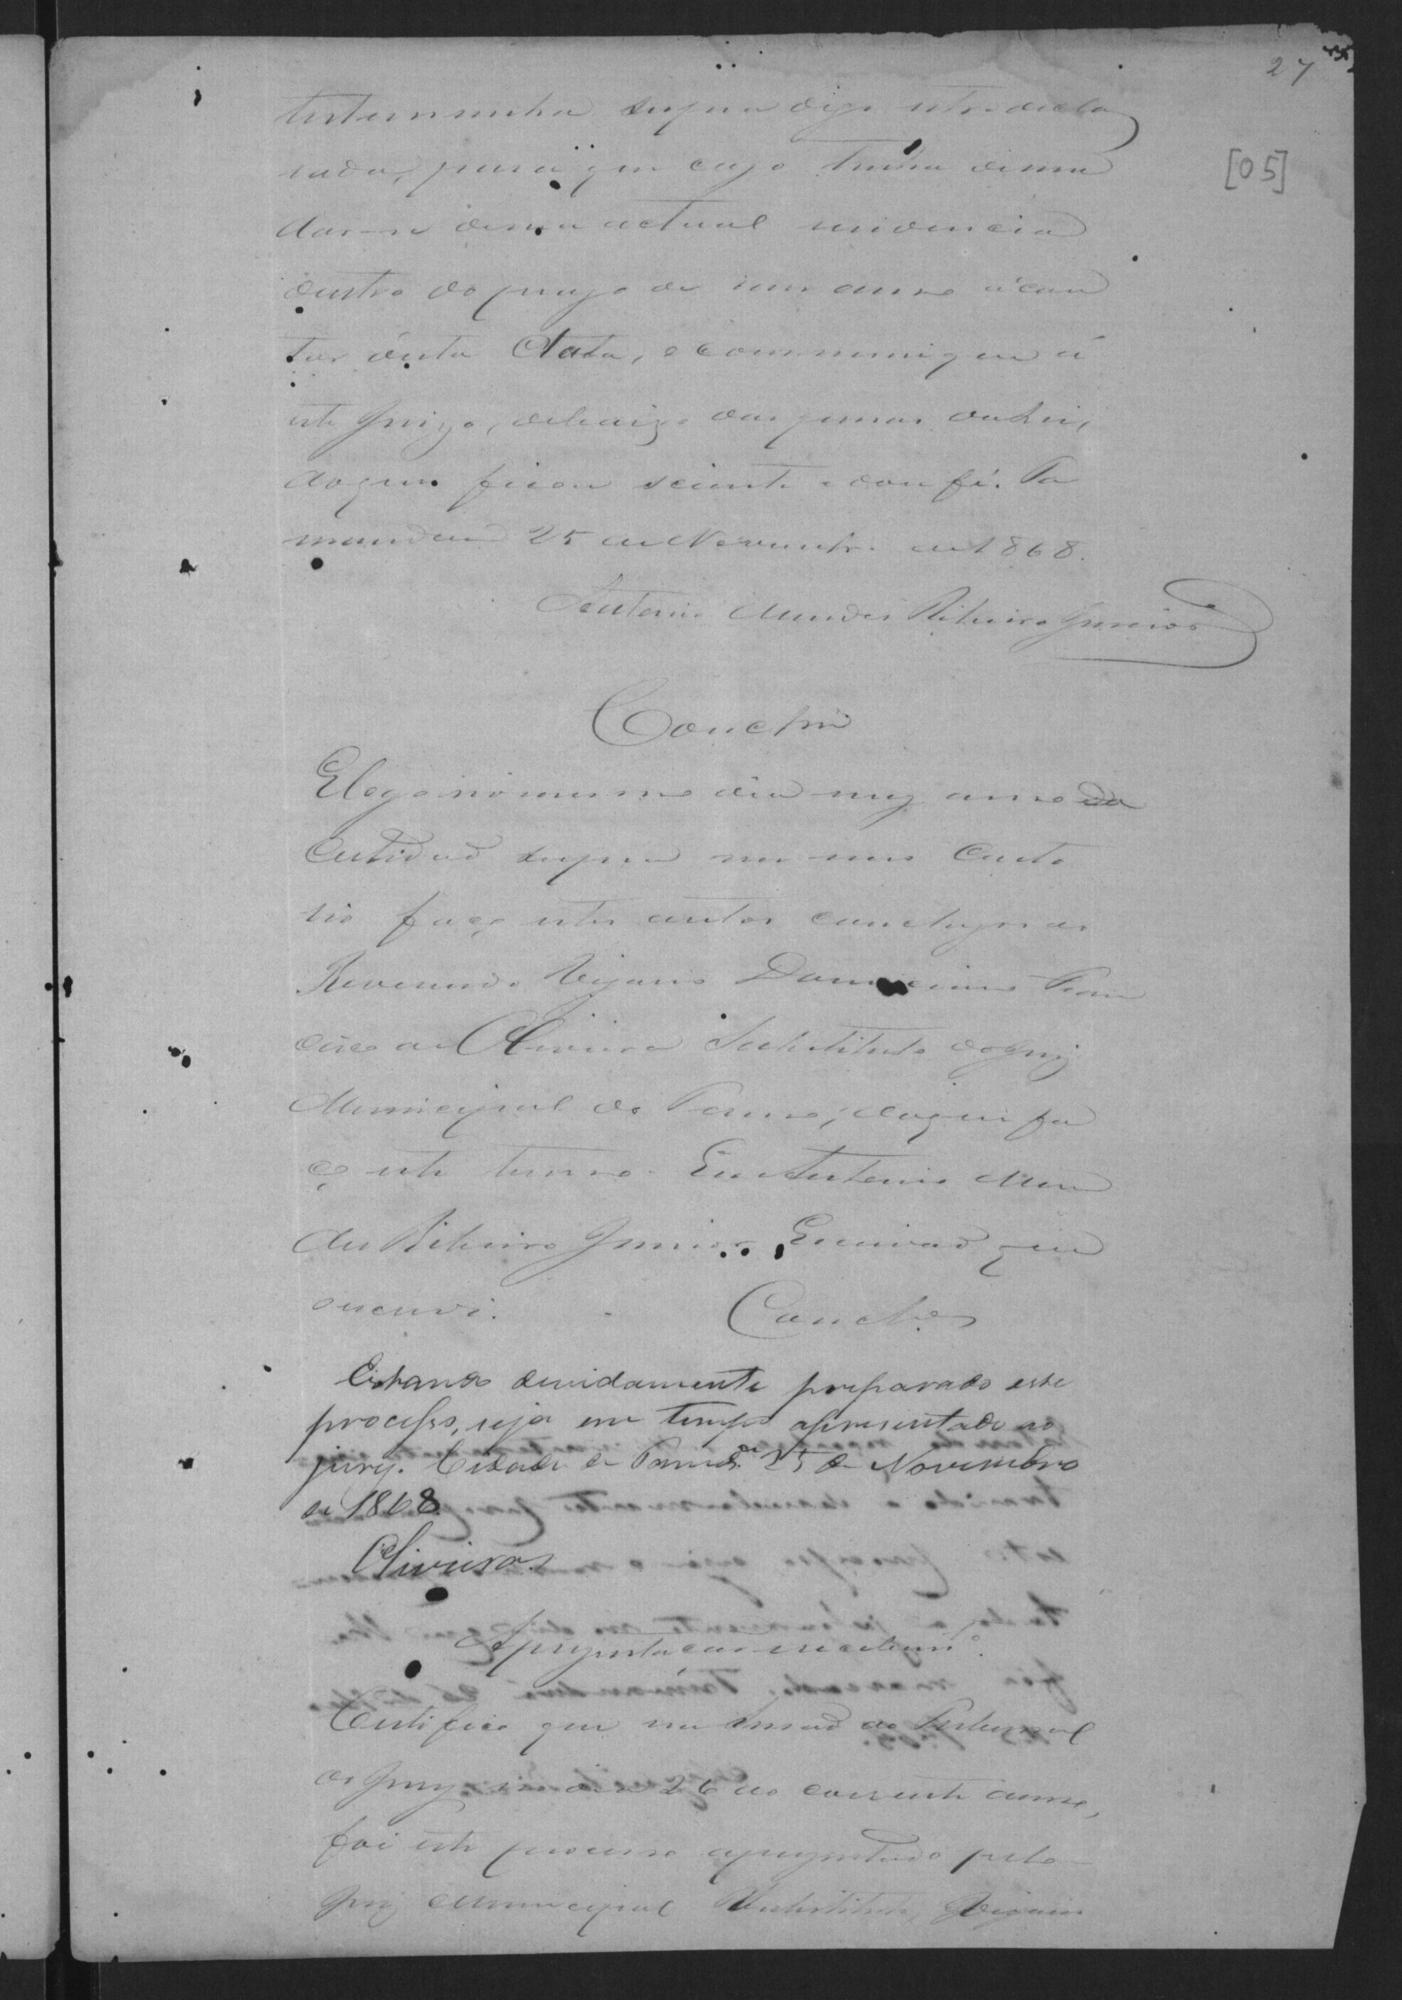 27
[05]
testemunha supra digo retro decla
rada, para que caso tenha de mu
dar-se de sua actual residencia
dentro do prazo de um anno á con
tar désta Data, o communique á
este Juizo, debaixo das penas da Lei,
do que ficou sciente e dou fé. Ta
mandua 25 de Novembro de 1868.
Antonio Mendes Ribeiro Junior
Conclm
E logo no mesmo dia mez anno da
Certidaõ supra em meu Carto
rio faço estes autos conclusos ao
Reverendo Vigario Domiciano Fran
cisco de Oliveira Substituto do Juiz
Municipal do Termo; do que fa
ço este termo. Eu Antonio Men
des Ribeiro Junior, Escrivaõ que
escrevi.
Conclos
Estando devidamente preparado este
processo, seja em tempo apresentado ao
jury. Cidade de Tamdá 25 de Novembro
de 1868
Oliveira
Apresentaçaõ e recebimto
Certifico que na Sessaõ do Tribunal
do Jury no dia 26 do corrente anno,
foi este processo apresentado pelo
Juiz Municipal Substituto, Vigario